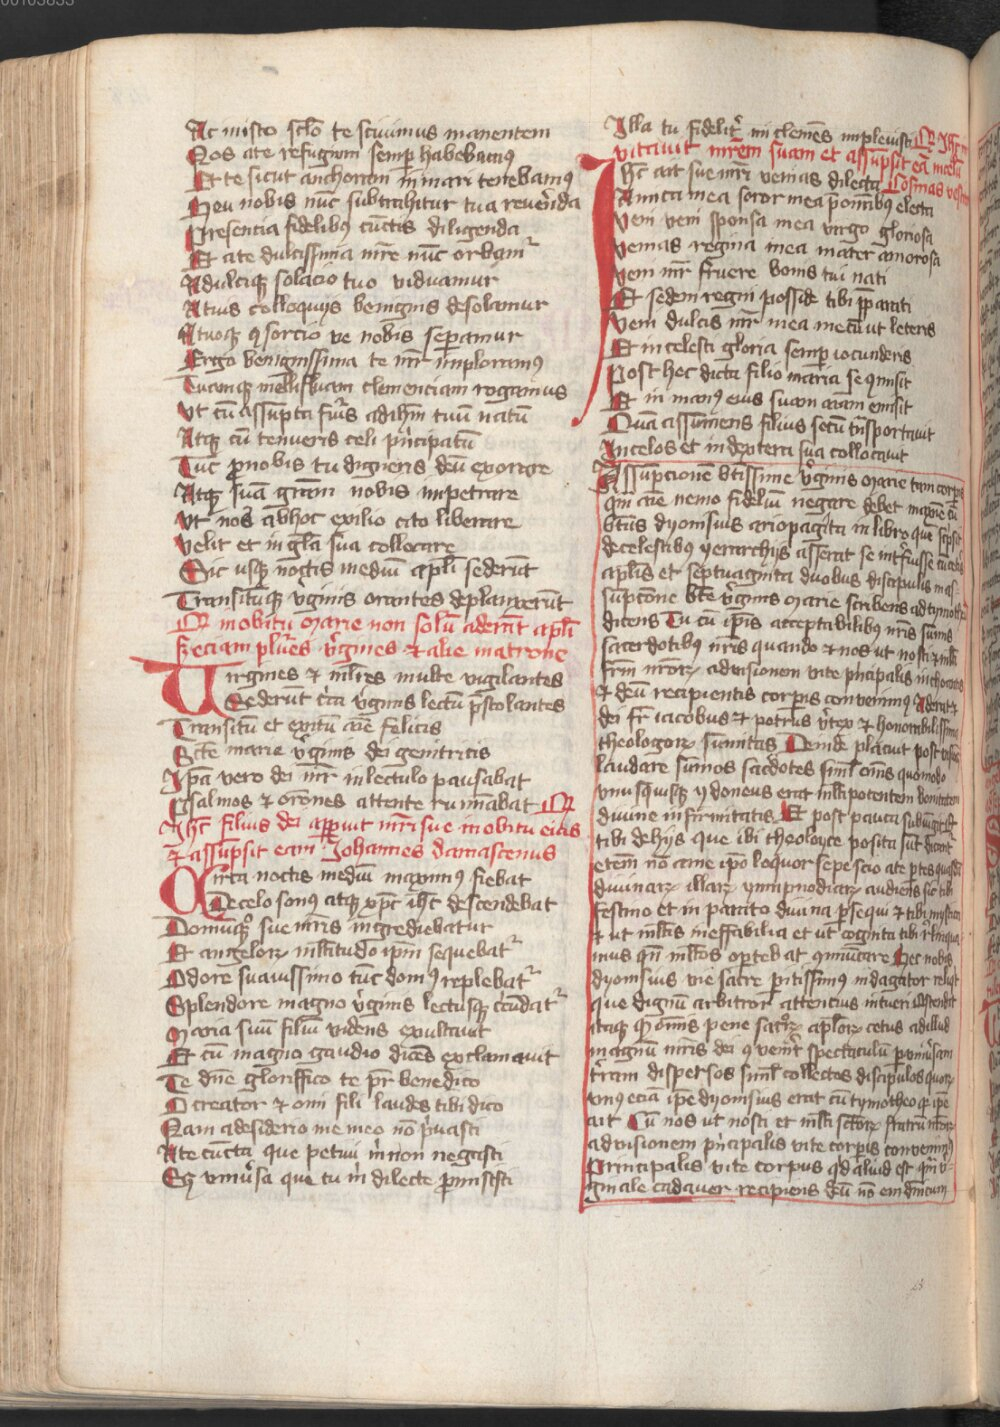 00103833
Ac in isto sclo te scivimus manentem
Nos a te refugium semp habebamus
Et te sicut anchoram in mari tenebamus
Heu nobis nunc subtrahitur tua reverenda
Presencia fidelibus cunctis diligenda
Et a te dulcissima mre nunc orbamur
A dulcique solacio tuo viduamur
A tuis colloquijs benignis desolamur
A tuoque consorcio ve nobis separamur
Ergo benignissima te mr imploramus
Tuamque mellifluam clemenciam rogamus
Ut cu assumpta fuis ad ihm tuu natu
Atque cu tenueris celi principatu
Tuc pro nobis tu digneris deu exorare
Atque sua gram nobis impetrare
Ut nos ab hoc exilio cito liberare
Velit et in gla sua collocare
Sic usque noctis mediu apli sederut
Transitumque virginis orantes deplanxerut
Q in obitu marie non solu aderat apli
sz eciam plures virgines et alie matrone
Virgines et mlres multe vigilantes
Sederut circa virginis lectu prestolantes
Transitu et exitu aie felicis
Scte marie virginis dei genitricis
Ipa vero dei mr in lectulo pausabat
Psalmos et orones attente ruminabat Q
Ihc filius dei apparuit mri sue in obitu eius
et assumpsit eam Johannes damascenus
Circa noctis mediu maximus fiebat
De celo sonus atque xpc ihc descendebat
Domumque sue mris ingrediebatur
Et angelorum multitudo ipm sequebatur
Odore suavissimo tuc domus replebatur
Splendore magno virginis lectusque
Maria suu filiu videns exultavit
Et cu magno gaudio dices exclamavit
Te dne glorifico te pr benedico
O creator et omi fili laudes tibi dico
Nam a desiderio me meo no privasti
A te cuncta que petivi mi non negasti
Et universa que tu mi dilecte promisisti
Illa tu fideliter mi clemes implevisti Q Ihc
vitavit mrem suam et assumpsit ea
Ihc ait sue mri venias dilecta Cosmas
Amica mea soror mea pre omibus electa
Veni veni sponsa mea virgo gloriosa
Venias regina mea mater amorosa
Veni mr fruere bonis tui nati
Et sedem regni posside tibi pparati
Veni dulcis mr mea mecu ut leteris
Et in celesti gloria semp iocunderis
Post hec dicta filio maria se
Et in manus eius suam aiam emisit
Qua assumens filius secu transportavit
In celos et in dextera sua collocavit
Assumpcione btissime virginis Marie tam corpis
qm aie nemo fideliu negare debet maxie cu
btus dyonisius ariopagita in libro que scpsit
de celestibus yerarchijs asserat se
aplis et septuaginta duobus discipulis in as-
supcone bte virginis Marie scribens ad tymotheu
dicens Tu cu ipis acceptabilibus nris summis
sacerdotibus nris quando et nos ut nosti et mlti
frm nrorum ad visionem vite principalis
et deu recipientis corpis convenimus Aderat et
dei fr iacobus et petrus vertex et honorabilissima
theologorum sumitas Deinde placuit post
laudare sumos sacerdotes siml omes quomodo
unusquisque ydoneus erat mltipotentem bonitatem
divine infirmitatis Et post pauca
tibi de hijs que ibi theologyce posita sut
etem no ame ipo loquor sepe scio a te ptes quasdam
divinarum illarum ympnodiarum audiens sic tibi
festino et in parcito divina psequi et tibi mystica
et ut mltis ineffabilia et ut cognita tibi
mus qm mltos oportebat communicare Hec nobis
dyonisius vie sacre peritissimus indagator
que dignu arbitror attencius intueri Ostendit
itaque q omis pene sacrorum aplorum cetus ad illud
magnu mris dei conveniret spectaculu
terram dispersos siml collectos discipulos quorum
unus ecia ipe dyonisius erat cu tymotheo
ait Cu nos ut nosti et mlti sctorum fratru
ad visionem principalis vite corpis convenimus
Principalis vite corpus qd aliud est qm vir-
ginale cadaver recipiens deu no em